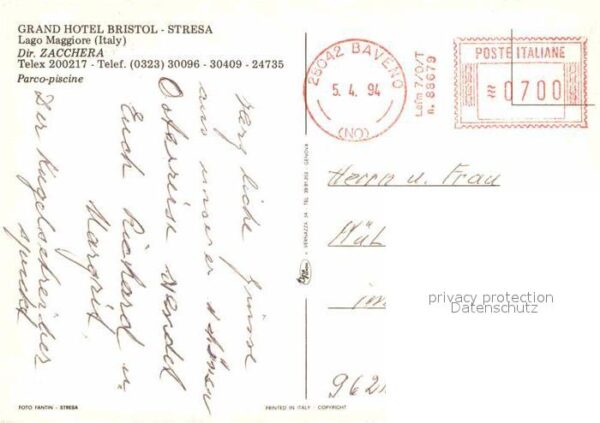 GRAND HOTEL BRISTOL - STRESA
Lago Maggiore (Italy)
Dir. ZACCHERA
Telex 200217 - Telef. (0323) 30096 - 30409 - 24735
Parco-piscine
Herzliche Grüsse
aus unserer schönen
Osterreise sendet
Euch Richard u.
Margrit
Der Kugelschreiber
spuckt
28042 BAVENO
5. 4. 94
(NO)
n. 88679
POSTE ITALIANE
0700
Herrn u. Frau
im
962
privacy protection
Datenschutz
FOTO FANTIN - STRESA
PRINTED IN ITALY COPYRIGHT